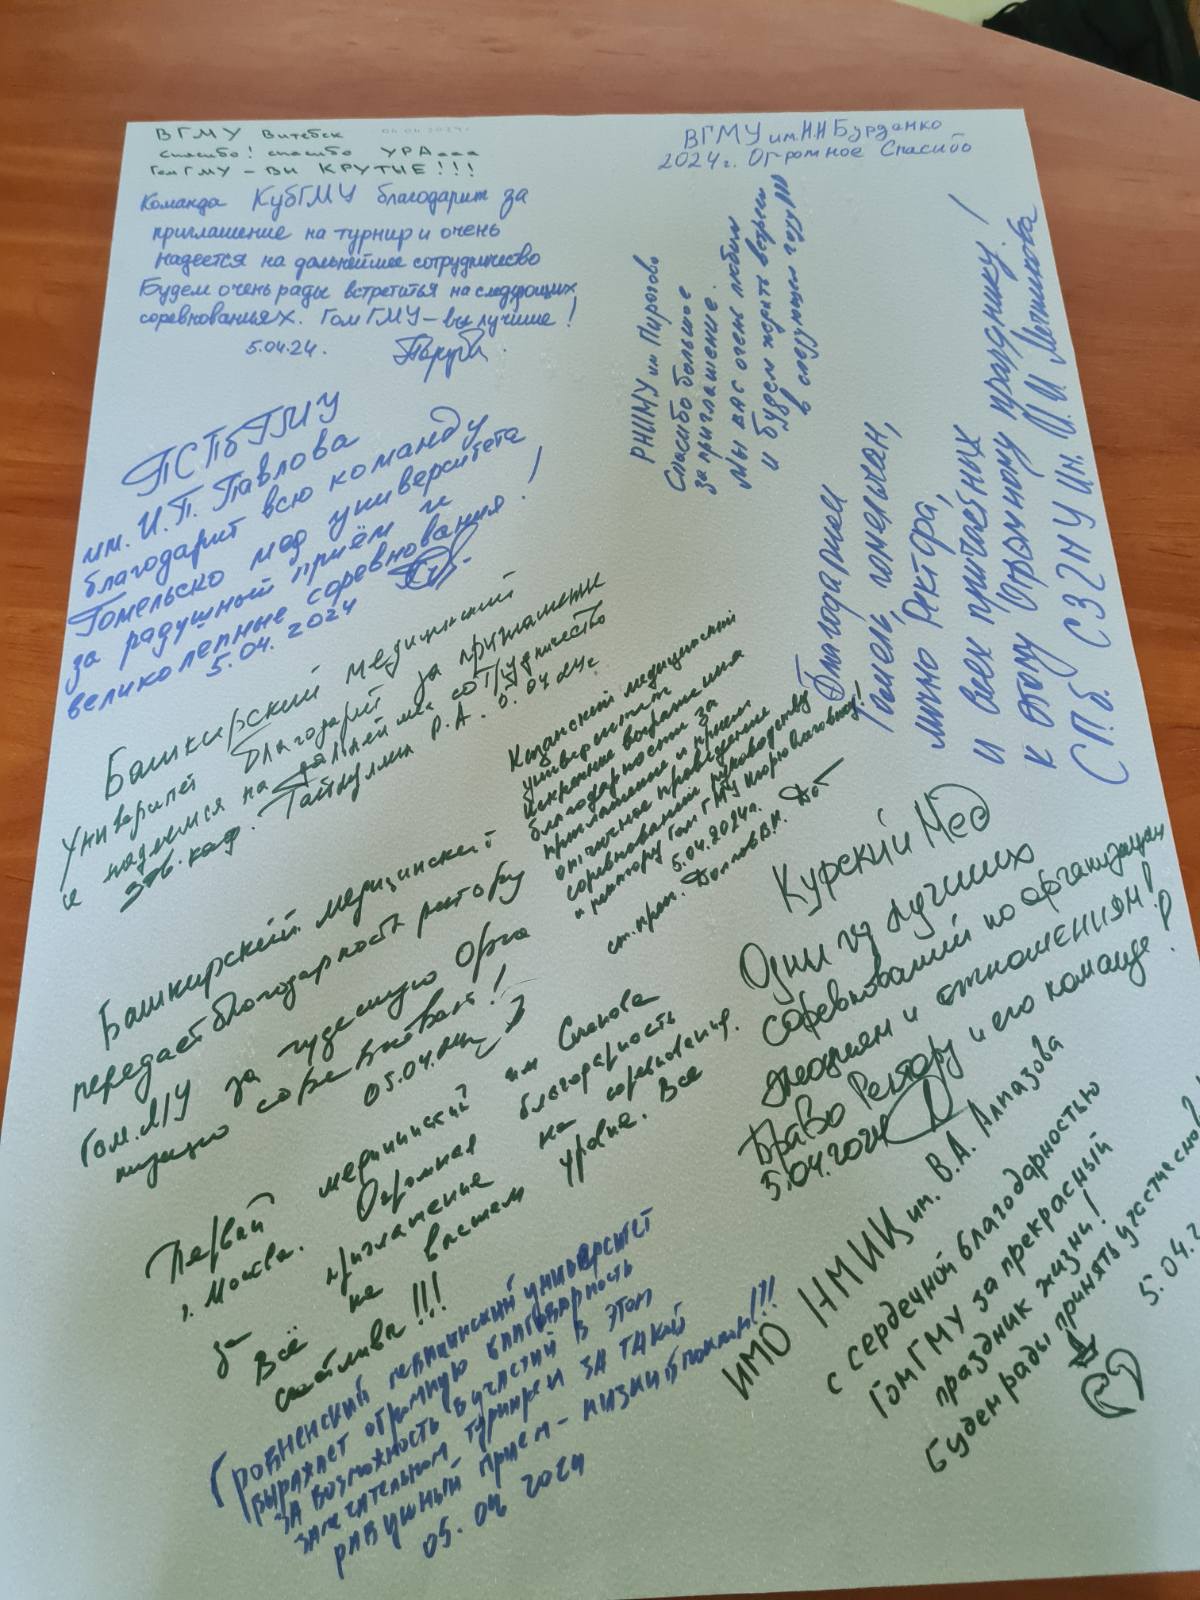 ВГМУ Витебск 04.04.2024г.
спасибо! спасибо УРАааа
ГомГМУ - ВЫ КРУТЫЕ!!!
Команда КубГМУ благодарит за
приглашение на турнир и очень
надеется на дальнейшее сотрудничество
Будем очень рады встретиться на следующих
соревнованьях. ГомГМУ - вы лучшие!
5.04.24.
ВГМУ им. Н.Н Бурденко
2024г. Огромное Спасибо
РНИМУ им Пирогова
Спасибо большое
за приглашение.
Мы вас очень любим
и будем ждать встречи
в следующем году)))
ПСПбГМУ
им. И.П. Павлова
благодарит всю команду
Гомельско мед университета
за радушный приём и
великолепные соревнования!
5.04.2024
Благодарим
Гомель, гомельчан,
лично Ректора,
и всех причастных
к этому огромному празднику!
СПб. СЗГМУ им. И.И Мечникова
Башкирский медицинский
Университет благодарит за приглашение
и надеемся на дальнейшее сотрудничество
зав. каф. Гайнуллин Р.А. 5.04.24г.
Казанский медицинский
университет
искренне выражаем
благодарность за
приглашение и прием
отличное проведение
соревнований руководству
и ректору ГомГМУ Игорю Олеговичу!
5.04.2024г.
ст. преп.
Башкирский медицинский
передает благодарность ректору
Гом.МУ за чудесную орга
низацию соревнований!
05.04.24
Курский Мед
Одни из лучших
соревнований по организации
эмоциям и отношениям!
Браво Ректору и его команде!
5.04.2024
Первый медицинский им Сеченова
г. Москва. Огромная благодарность
за приглашение на соревнования.
Всё на высшем уровне. Все
счастливы!!!
ИМО НМИЦ им. В.А. Алмазова
с сердечной благодарностью
ГомГМУ за прекрасный
праздник жизни!
Будем рады принять участие снова!
5.04.2
Гродненский медицинский университет
выражает огромную благодарность
за возможность участия в этом
замечательном турнире и за такой
радушный прием - низкий поклон!!!
05.04 2024